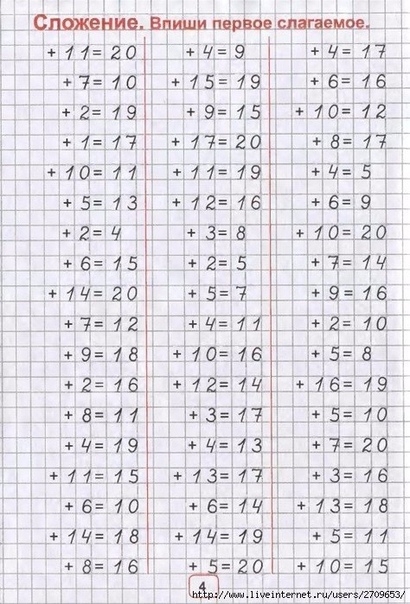 Сложение. Впиши первое слагаемое.
+ 11 = 20 + 4 = 9 + 4 = 17
+ 7 = 10 + 15 = 19 + 6 = 16
+ 2 = 19 + 9 = 15 + 10 = 12
+ 1 = 17 + 17 = 20 + 8 = 17
+ 10 = 11 + 11 = 19 + 4 = 5
+ 5 = 13 + 12 = 16 + 6 = 9
+ 2 = 4 + 3 = 8 + 10 = 20
+ 6 = 15 + 2 = 5 + 7 = 14
+ 14 = 20 + 5 = 7 + 9 = 16
+ 7 = 12 + 4 = 11 + 2 = 10
+ 9 = 18 + 10 = 16 + 5 = 8
+ 2 = 16 + 12 = 14 + 16 = 19
+ 8 = 11 + 3 = 17 + 5 = 10
+ 4 = 19 + 4 = 13 + 7 = 20
+ 11 = 15 + 13 = 17 + 3 = 16
+ 6 = 10 + 6 = 14 + 13 = 18
+ 14 = 18 + 14 = 19 + 5 = 11
+ 8 = 16 + 5 = 20 + 10 = 15
4
http://www.liveinternet.ru/users/2709653/